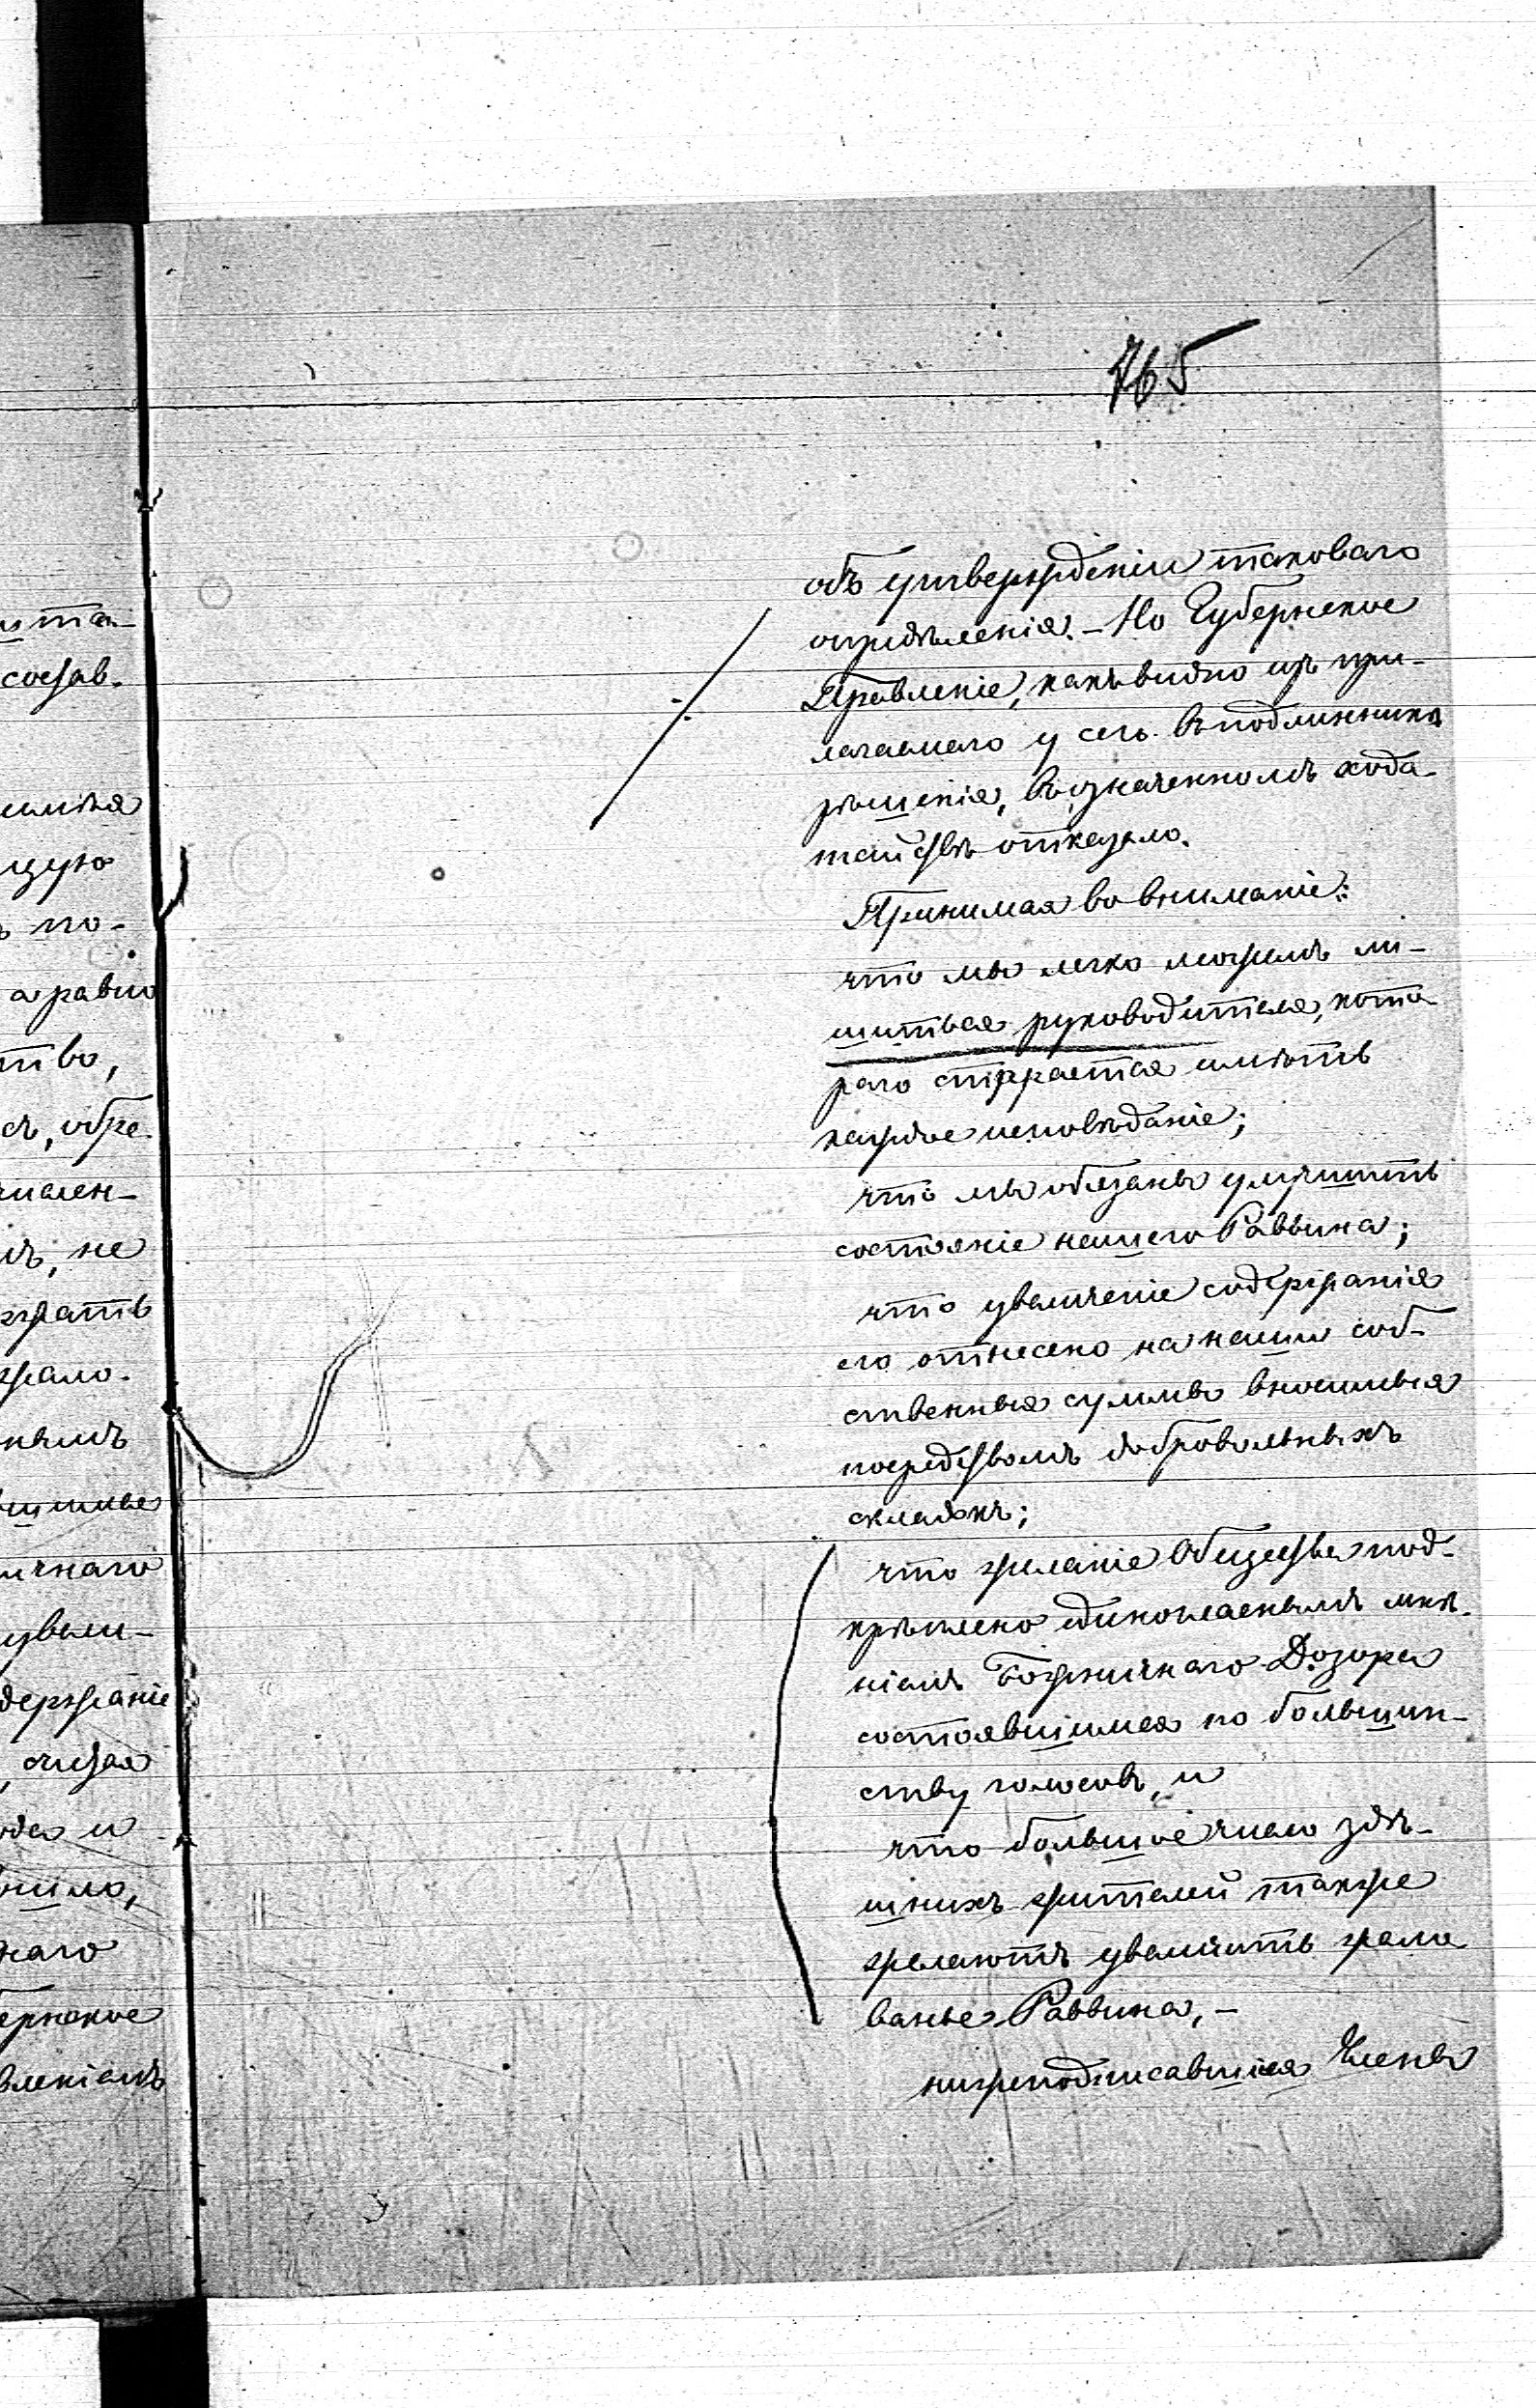 765
объ утвержденіи таковаго
опредѣленія. – Но Губернское
Правленіе, какъ видно изъ при-
лагаемаго у сего въ подлинникѣ
рѣшенія, въ означенномъ хода-
тайствѣ отказало.
Принимая во вниманіе:
что мы легко можемъ ли-
шиться руководителя, кото-
раго старается имѣть
каждое исповѣданіе;
что мы обязаны улучшить
состояніе нашего Раввина;
что увеличеніе содержанія
его отнесено на наши соб-
ственныя суммы вносимыя
посредствомъ добровольныхъ
складокъ;
что желаніе Общества под-
крѣплено единогласнымъ мнѣ-
ніемъ Божничнаго Дозора
состоявшимся по большин-
ству голосовъ, и
что большое число здѣ-
шнихъ жителей также
желаютъ увеличить жало
ванье Раввина, –
нижеподписавшіеся Члены
состав.
по-
а равно
тво,
не
держаніе
считая